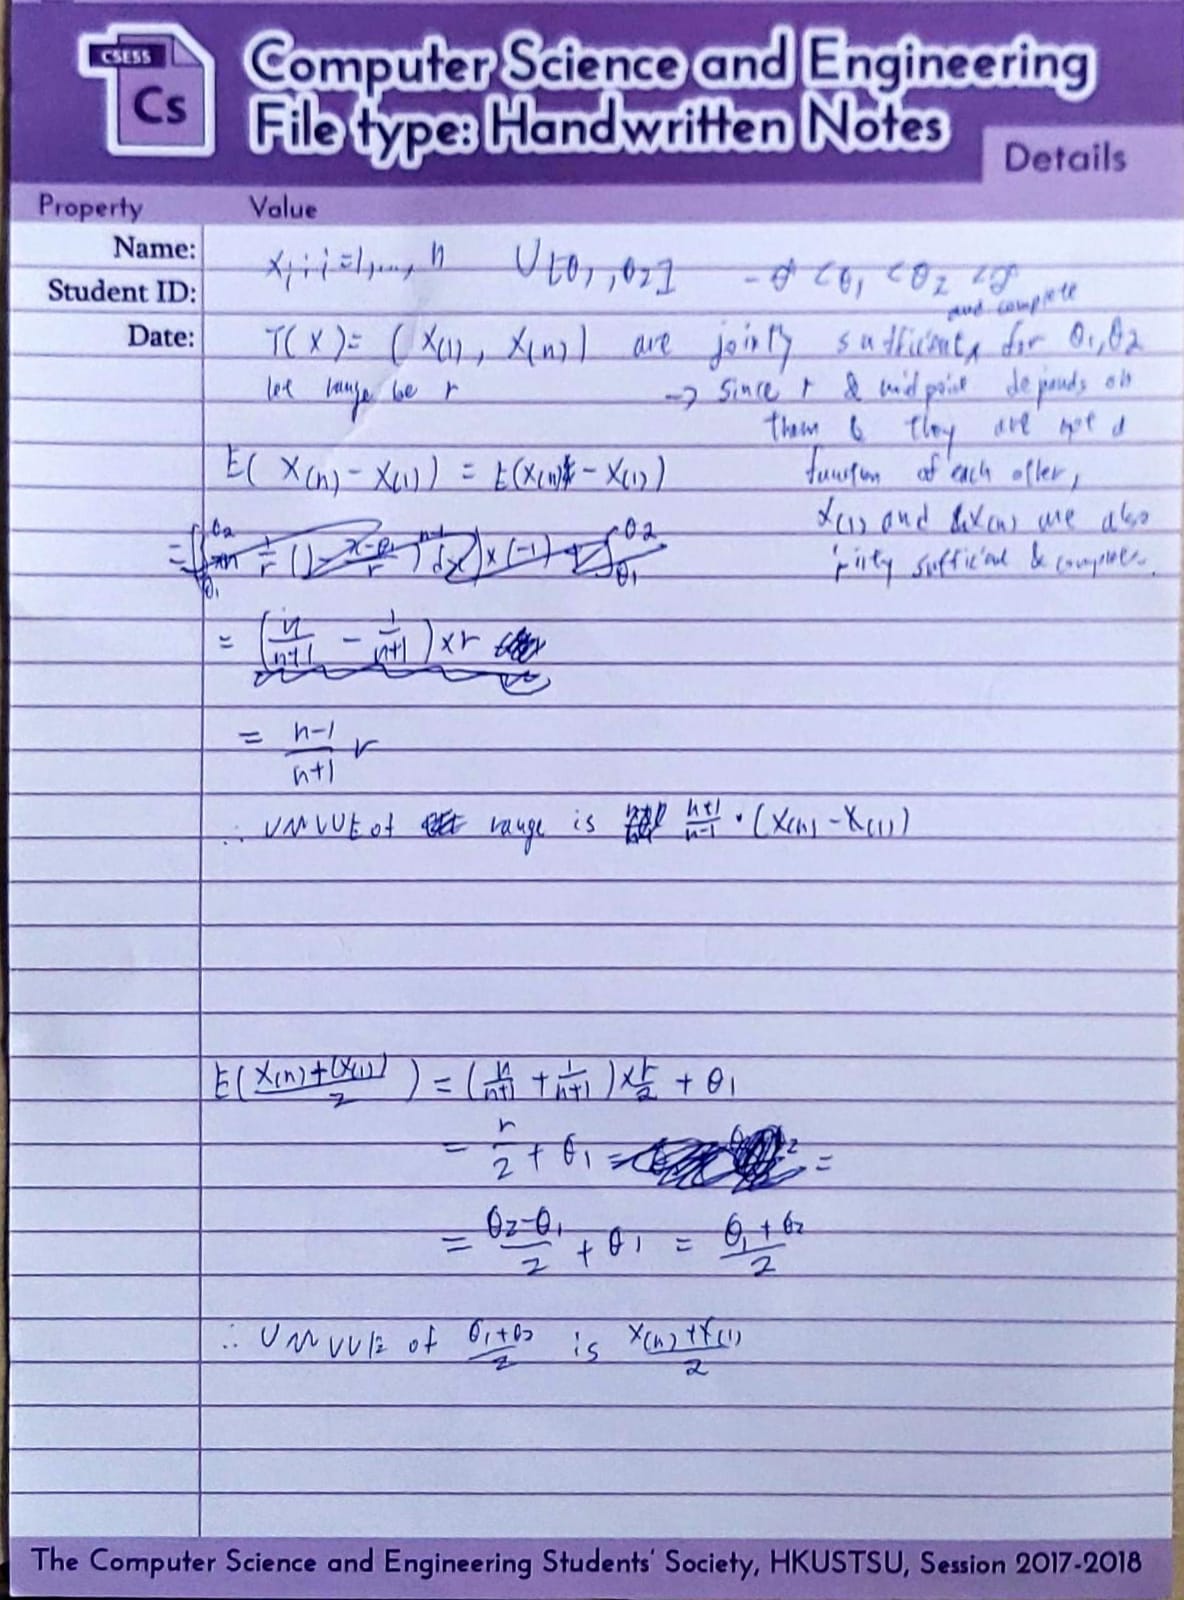 CSESS
Cs
Computer Science and Engineering
File type: Handwritten Notes
Details
Property Value
Name: Xi ; i=1,..., n U[θ1, θ2] -∞ < θ1 < θ2 < ∞
Student ID:
and complete
Date: T(X) = (X(1), X(n)) are jointly sufficient for θ1, θ2
let range be r → since r & midpoint depends on
them & they are not a
E(X(n) - X(1)) = E(X(n) - X(1)) function of each other,
X(1) and X(n) are also
jointly sufficient & complete.
= (n/(n+1) - 1/(n+1)) × r
= (n-1)/(n+1) r
∴ UMVUE of range is (n+1)/(n-1) · (X(n) - X(1))
E((X(n) + X(1))/2) = (n/(n+1) + 1/(n+1)) × r/2 + θ1
= r/2 + θ1 =
= (θ2-θ1)/2 + θ1 = (θ1+θ2)/2
∴ UMVUE of (θ1+θ2)/2 is (X(n)+X(1))/2
The Computer Science and Engineering Students' Society, HKUSTSU, Session 2017-2018